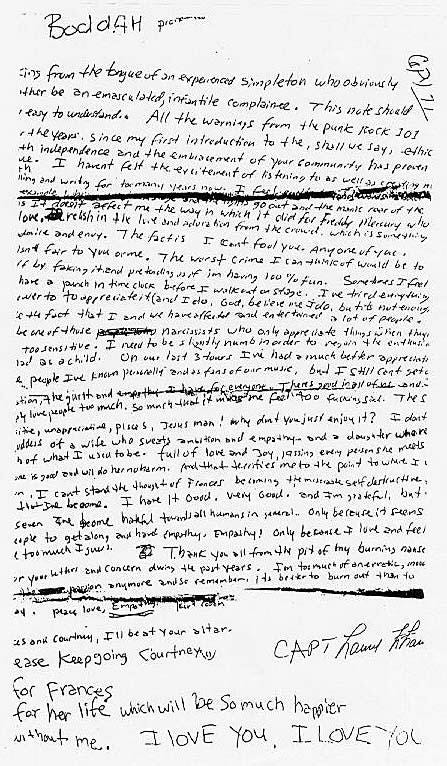 BoddAH
ing from the tongue of an experienced simpleton who obviously
ther be an emasculated, infantile complainee. This note should
easy to understand. All the warnings from the punk Rock 101
the years. Since my first introduction to the, shall we say, ethic
th independence and the embracement of your community has proven
ue. I havent felt the excitement of listening to as well as creating
and writing for too many years now. I feel
go out and the manic roar of the
it doesnt affect me the way in which it did for freddy Mercury who
love, relish in the love and adoration from the crowd. which is something
admire and envy. The fact is I cant fool you. Any one of you.
isnt fair to you or me. The worst crime I can think of would be to
ff by faking it and pretending as if im having 100% fun. Sometimes I feel
have a punch in time clock before I walk out on stage. I've tried everything
ower to appreciate it (and I do, God, believe me I do, but its not enough
the fact that I and we have affected and entertained a lot of people.
be one of those narcissists who only appreciate things when they
too sensitive. I need to be slightly numb in order to regain the enthusia
had as a child. On our last 3 tours I've had a much better appreciati
people I've known personally and as fans of our music, but I still cant get o
ation, the guilt and empathy I have for everyone. Theres good in all of us and
ply love people too much. So much that it makes me feel too fucking sad. The s
itive, unappreciative, pisces, Jesus man! why dont you just enjoy it? I dont
oddess of a wife who sweats ambition and empathy and a daughter who re
h of what I use to be. full of love and Joy, kissing every person she meets
one is good and will do her no harm. And that terrifies me to the point to where I
I cant stand the thought of Frances becoming the miserable self destructive,
that Ive become. I have it Good. Very Good. and I'm grateful, but
seven I've become hateful towards all humans in general. Only because it seems
eople to get along and have empathy. Empathy! Only because I love and feel
e too much I guess. Thank you all from the pit of my burning nause
or your letters and concern during the past years. I'm too much of an erratic, moo
passion anymore and so remember, its better to burn out than to
peace, love, Empathy. Kurt Cobain
es and Courtney, I'll be at your altar.
ease Keep going Courtney,
for Frances
for her life which will be so much happier
without me. I LOVE YOU. I LOVE YOU
CAPT